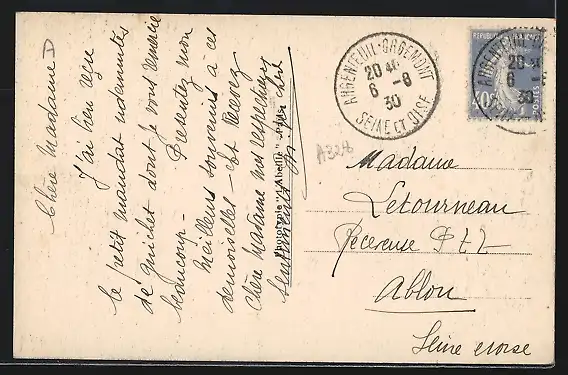 Chère Madame
J'ai bien reçu
le petit mandat indemnités
de guichet dont je vous remercie
beaucoup - Présentez mon
meilleurs souvenirs à ces
demoiselles - et recevez
Chère Madame mes respectueux
sentiments
"L'Abeille"
ARGENTEUIL-ORGEMONT
20
6 -8
30
SEINE ET OISE
REPUBLIQUE FRANÇAISE
40c
POSTES
20
6
30
A328
Madame
Letourneau
Receveuse P.T.T
Ablon
Seine et oise